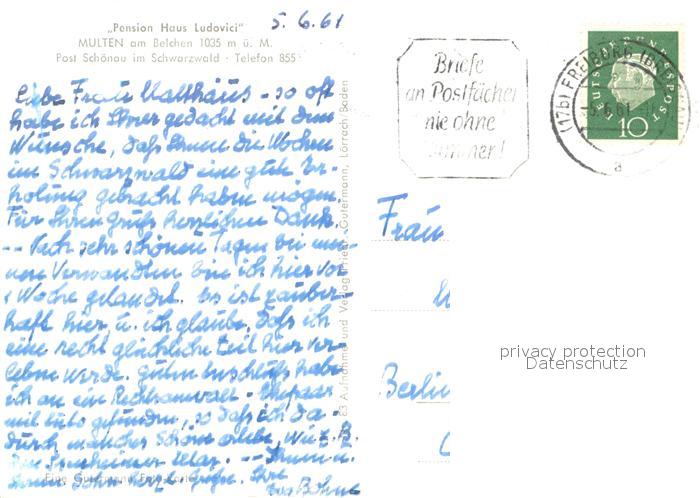 5.6.61
„Pension Haus Ludovici"
MULTEN am Belchen 1035 m ü. M.
Post Schönau im Schwarzwald · Telefon 855
Liebe Frau Malthäus – so oft
habe ich Ihrer gedacht mit dem
Wunsche, daß Ihnen die Wochen
im Schwarzwald eine gute Er-
holung gebracht haben mögen.
Für Ihren Gruß herzlichen Dank.
-- Nach sehr schönen Tagen bei mei-
nen Verwandten bin ich hier vor
1 Woche gelandet. Es ist zauber-
haft hier, u. ich glaube, daß ich
eine recht glückliche Zeit hier ver-
leben werde. Guten Anschluß habe
ich an ein Rechtsanwalt - Ehepaar
mit Auto gefunden, so daß ich da-
durch manches Schöne erlebe, wie z. B.
-- Ihnen u.
Ihrem Sohn herzl. Grüße. Ihre
Eva Böhme
83 Aufnahme und Verlag Gutermann, Lörrach/Baden
Briefe
an Postfächer
nie ohne
Nummer!
(17b) FREIBURG (BREISGAU)
-5.6.61
a
DEUTSCHE BUNDESPOST
10
Frau
Berlin
privacy protection
Datenschutz